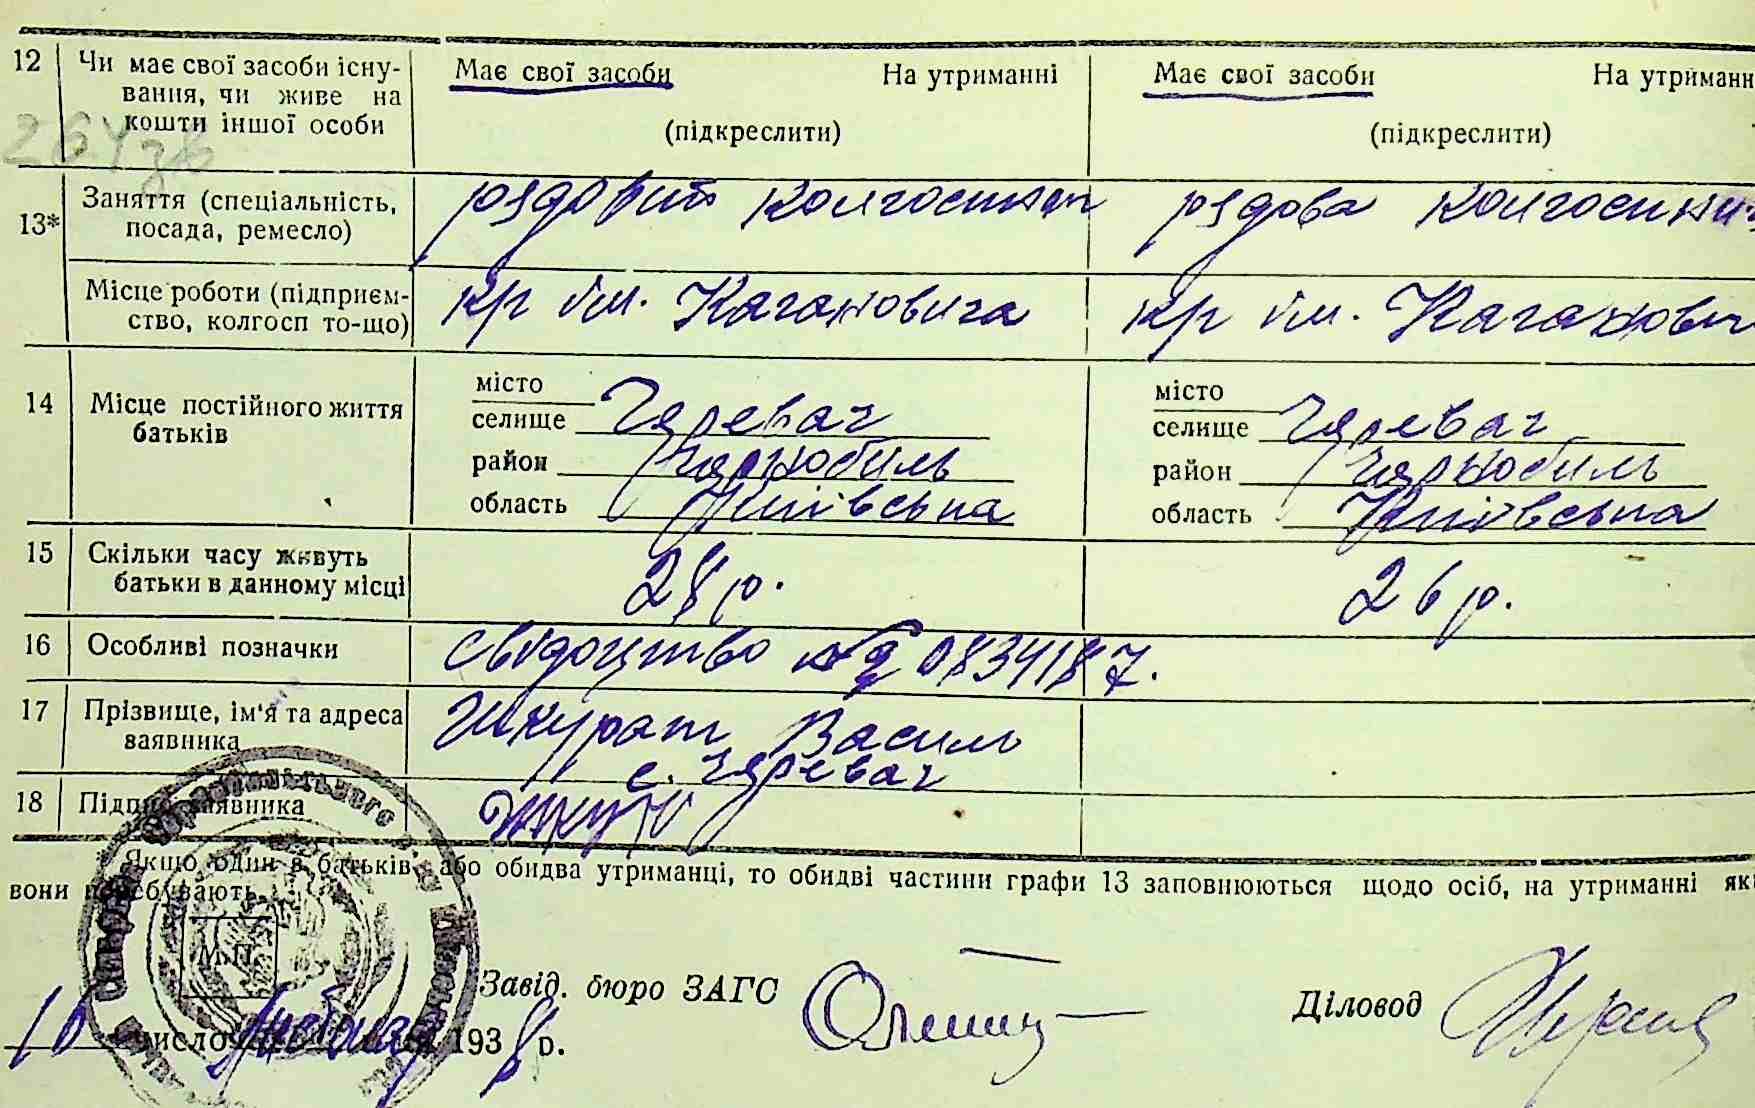 12 Чи має свої засоби існу-
вання, чи живе на
кошти іншої особи
Має свої засоби На утриманні
(підкреслити)
Має свої засоби На утриманн
(підкреслити)
264 зв
13* Заняття (спеціальність,
посада, ремесло)
рядовий колгоспник
рядова колгоспни
Місце роботи (підприєм-
ство, колгосп то-що)
кр ім. Кагановича
кр ім. Каганович
14 Місце постійного життя
батьків
місто
селище Черевач
район Чернобиль
область Київська
місто
селище Черевач
район Чернобиль
область Київська
15 Скільки часу живуть
батьки в данному місці
28 р.
26 р.
16 Особливі позначки
свідоцтво № 0834187.
17 Прізвище, ім'я та адреса
заявника
Шкурат Василь
с. Черевач
18 Підпис заявника
* Якщо один з батьків, або обидва утриманці, то обидві частини графи 13 заповнюються щодо осіб, на утриманні як
вони перебувають.
М.П.
Завід. бюро ЗАГС
Діловод
16 число 1938 р.